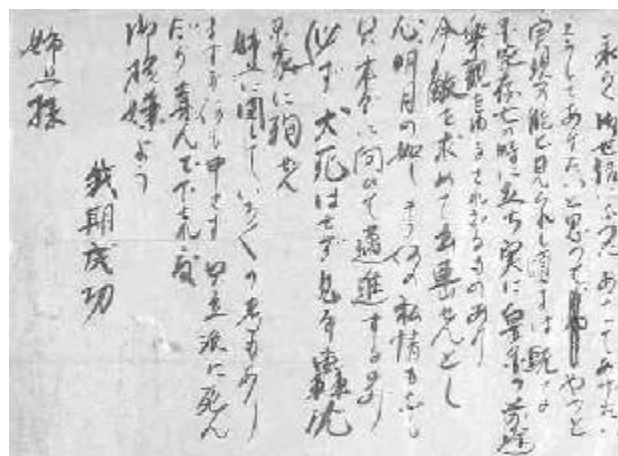 永々御世話になつた あゝしてあげたい
こうしてあげたいと思つて やつと
実現可能と見られし頃には既に
存亡の時に立ち実に皇国の前途
楽観を許るされざるものあり
今敵を求めて出撃せんとし
心明月の如し もう何の私情もなし
只本分に向ひて邁進するのみ
必ず犬死はせず見事轟沈
国家に殉せん
姉上に関していろ〱の思もあり
ますが何も申さず 只立派に死ん
だら喜んで下され度
御機嫌よう
我期成功
姉上様